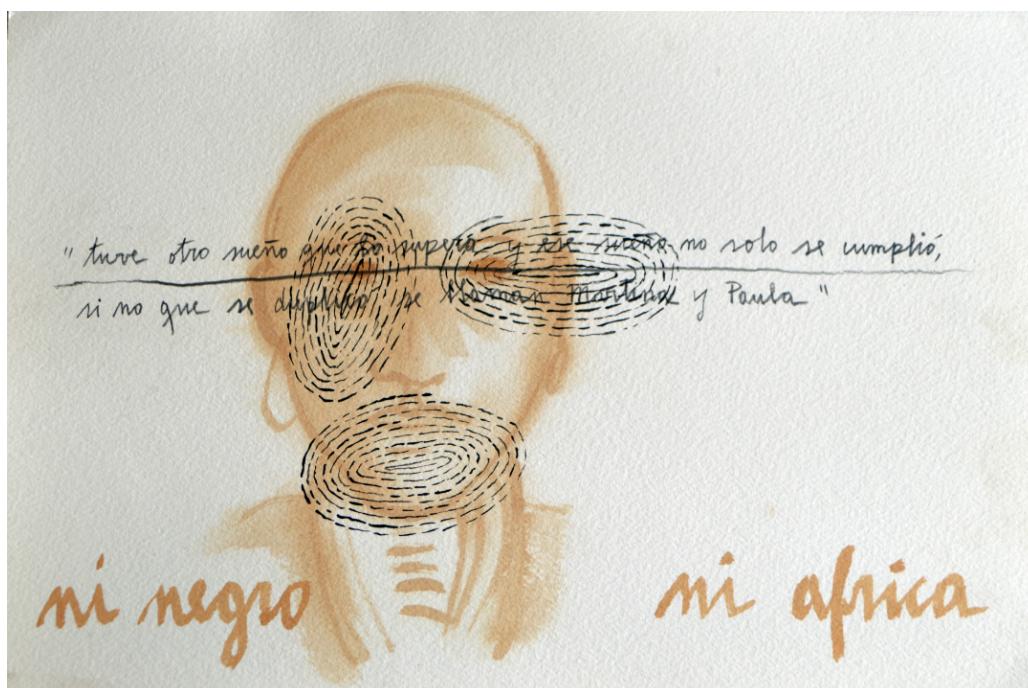 "tuve otro sueño que lo supera y ese sueño no solo se cumplió,
si no que se duplicó se llaman Martina y Paula"
ni negro
ni africa